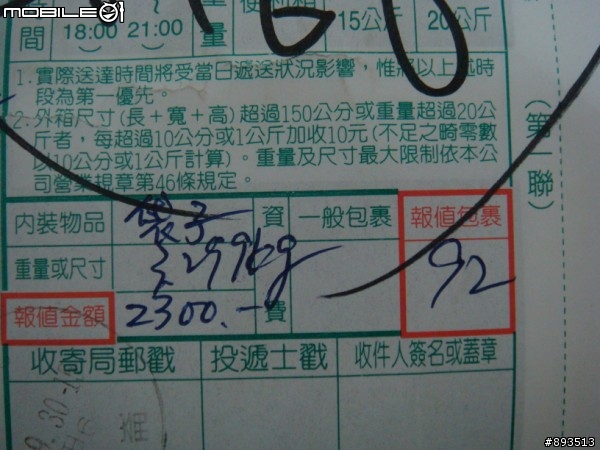 mobile01
間 18:00 21:00 量 便利箱 15公斤 20公斤
1.實際送達時間將受當日遞送狀況影響，惟將以上述時
段為第一優先。
2.外箱尺寸(長＋寬＋高)超過150公分或重量超過20公
斤者，每超過10公分或1公斤加收10元(不足之畸零數
以10公分或1公斤計算)。重量及尺寸最大限制依本公
司營業規章第46條規定。
（第一聯）
內裝物品 袋子 資 一般包裹 報值包裹
重量或尺寸 kg 92
報值金額 2300.- 費
收寄局郵戳 投遞士戳 收件人簽名或蓋章
#893513